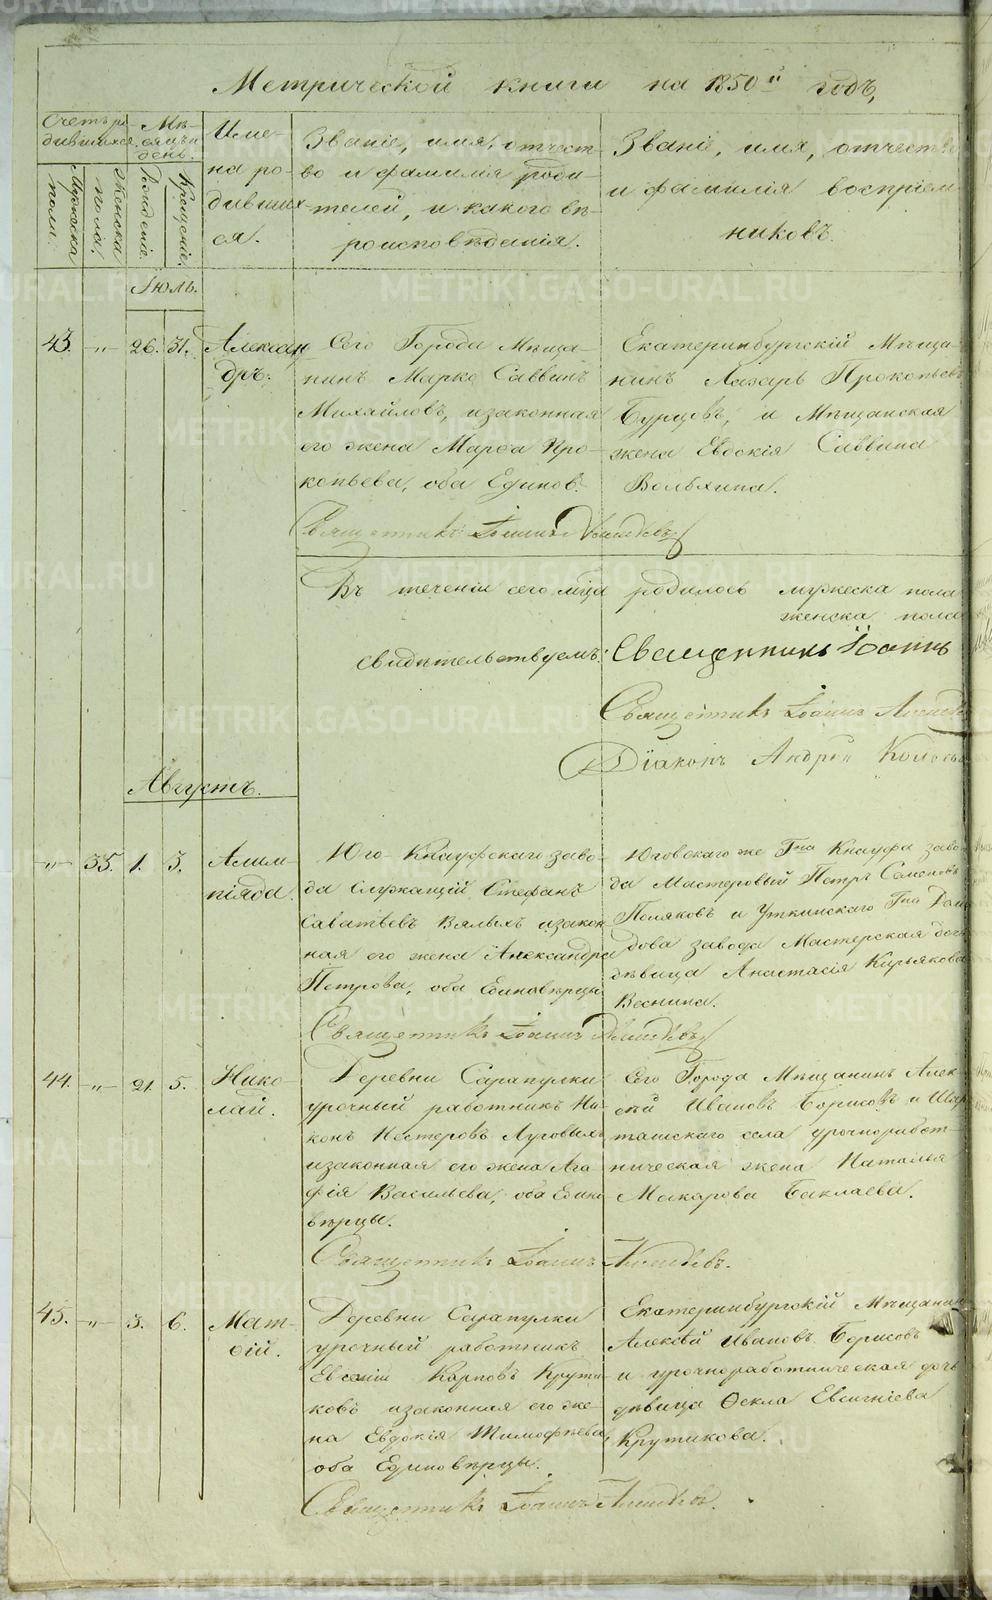 Метрической книги на 1850й годъ,
Счетъ ро-
дившихся.
Мѣ-
сяцъ и
день.
Име-
на ро-
дивших-
ся.
Званіе, имя, отчест-
во и фамилія роди-
телей, и какого вѣ-
роисповѣданія.
Званіе, имя, отчество
и фамилія воспріем-
никовъ.
Мужеска
пола.
Женска
пола.
Рожденія.
Крещенія.
Іюль.
43. -„- 26. 31. Алексан
дръ.
Сего Города Мѣща-
нинъ Марко Саввинъ
Михайловъ, изаконная
его жена Марфа Про-
копьева, оба Единов.
Екатеринбургскій Мѣща-
нинъ Лазарь Прокопьевъ
Бурцовъ, и Мѣщанская
жена Евдокія Саввина
Священникъ Іоаннъ
Въ теченіи сего мѣца родилось мужеска пола
женска пола
свидѣтельствуемъ: Священникъ Іоаннъ
Священникъ Іоаннъ
Діаконъ Андрей
Августъ.
-„- 35. 1. 3. Алим-
піяда.
Юго-Кнауфскаго заво-
да служащій Стефанъ
Саватѣевъ Вялыхъ изакон
ная его жена Александра
Петрова, оба Единовѣрцы
Юговскаго же Гна Кнауфа заво-
да Мастеровый Петръ Семеновъ
Поляковъ и Уткинскаго Гна Деми
дова завода Мастерская дочь
дѣвица Анастасія Карьякова
Веснина.
Священникъ Іоаннъ
44. -„- 21. 5. Нико-
лай.
Деревни Сарапулки
урочный работникъ Ни-
конъ Нестеровъ Луговыхъ
изаконная его жена Ага
фія Васильева, оба Едино
вѣрцы.
Сего Города Мѣщанинъ Алек-
сѣй Ивановъ Борисовъ и Шар
ташскаго села урочноработ-
ническая жена Наталья
Макарова Баклаева.
Священникъ Іоаннъ
45. -„- 3. 6. Мат-
ѳій.
Деревни Сарапулки
урочный работникъ
Карповъ Крути-
ковъ изаконная его же-
на Евдокія Тимофѣева,
оба Единовѣрцы.
Екатеринбургскій Мѣщанин
Алексѣй Ивановъ Борисовъ
и урочноработническая дочь
дѣвица Ѳекла Евсигніева
Крутикова.
Священникъ Іоаннъ
METRIKI.GASO-URAL.RU